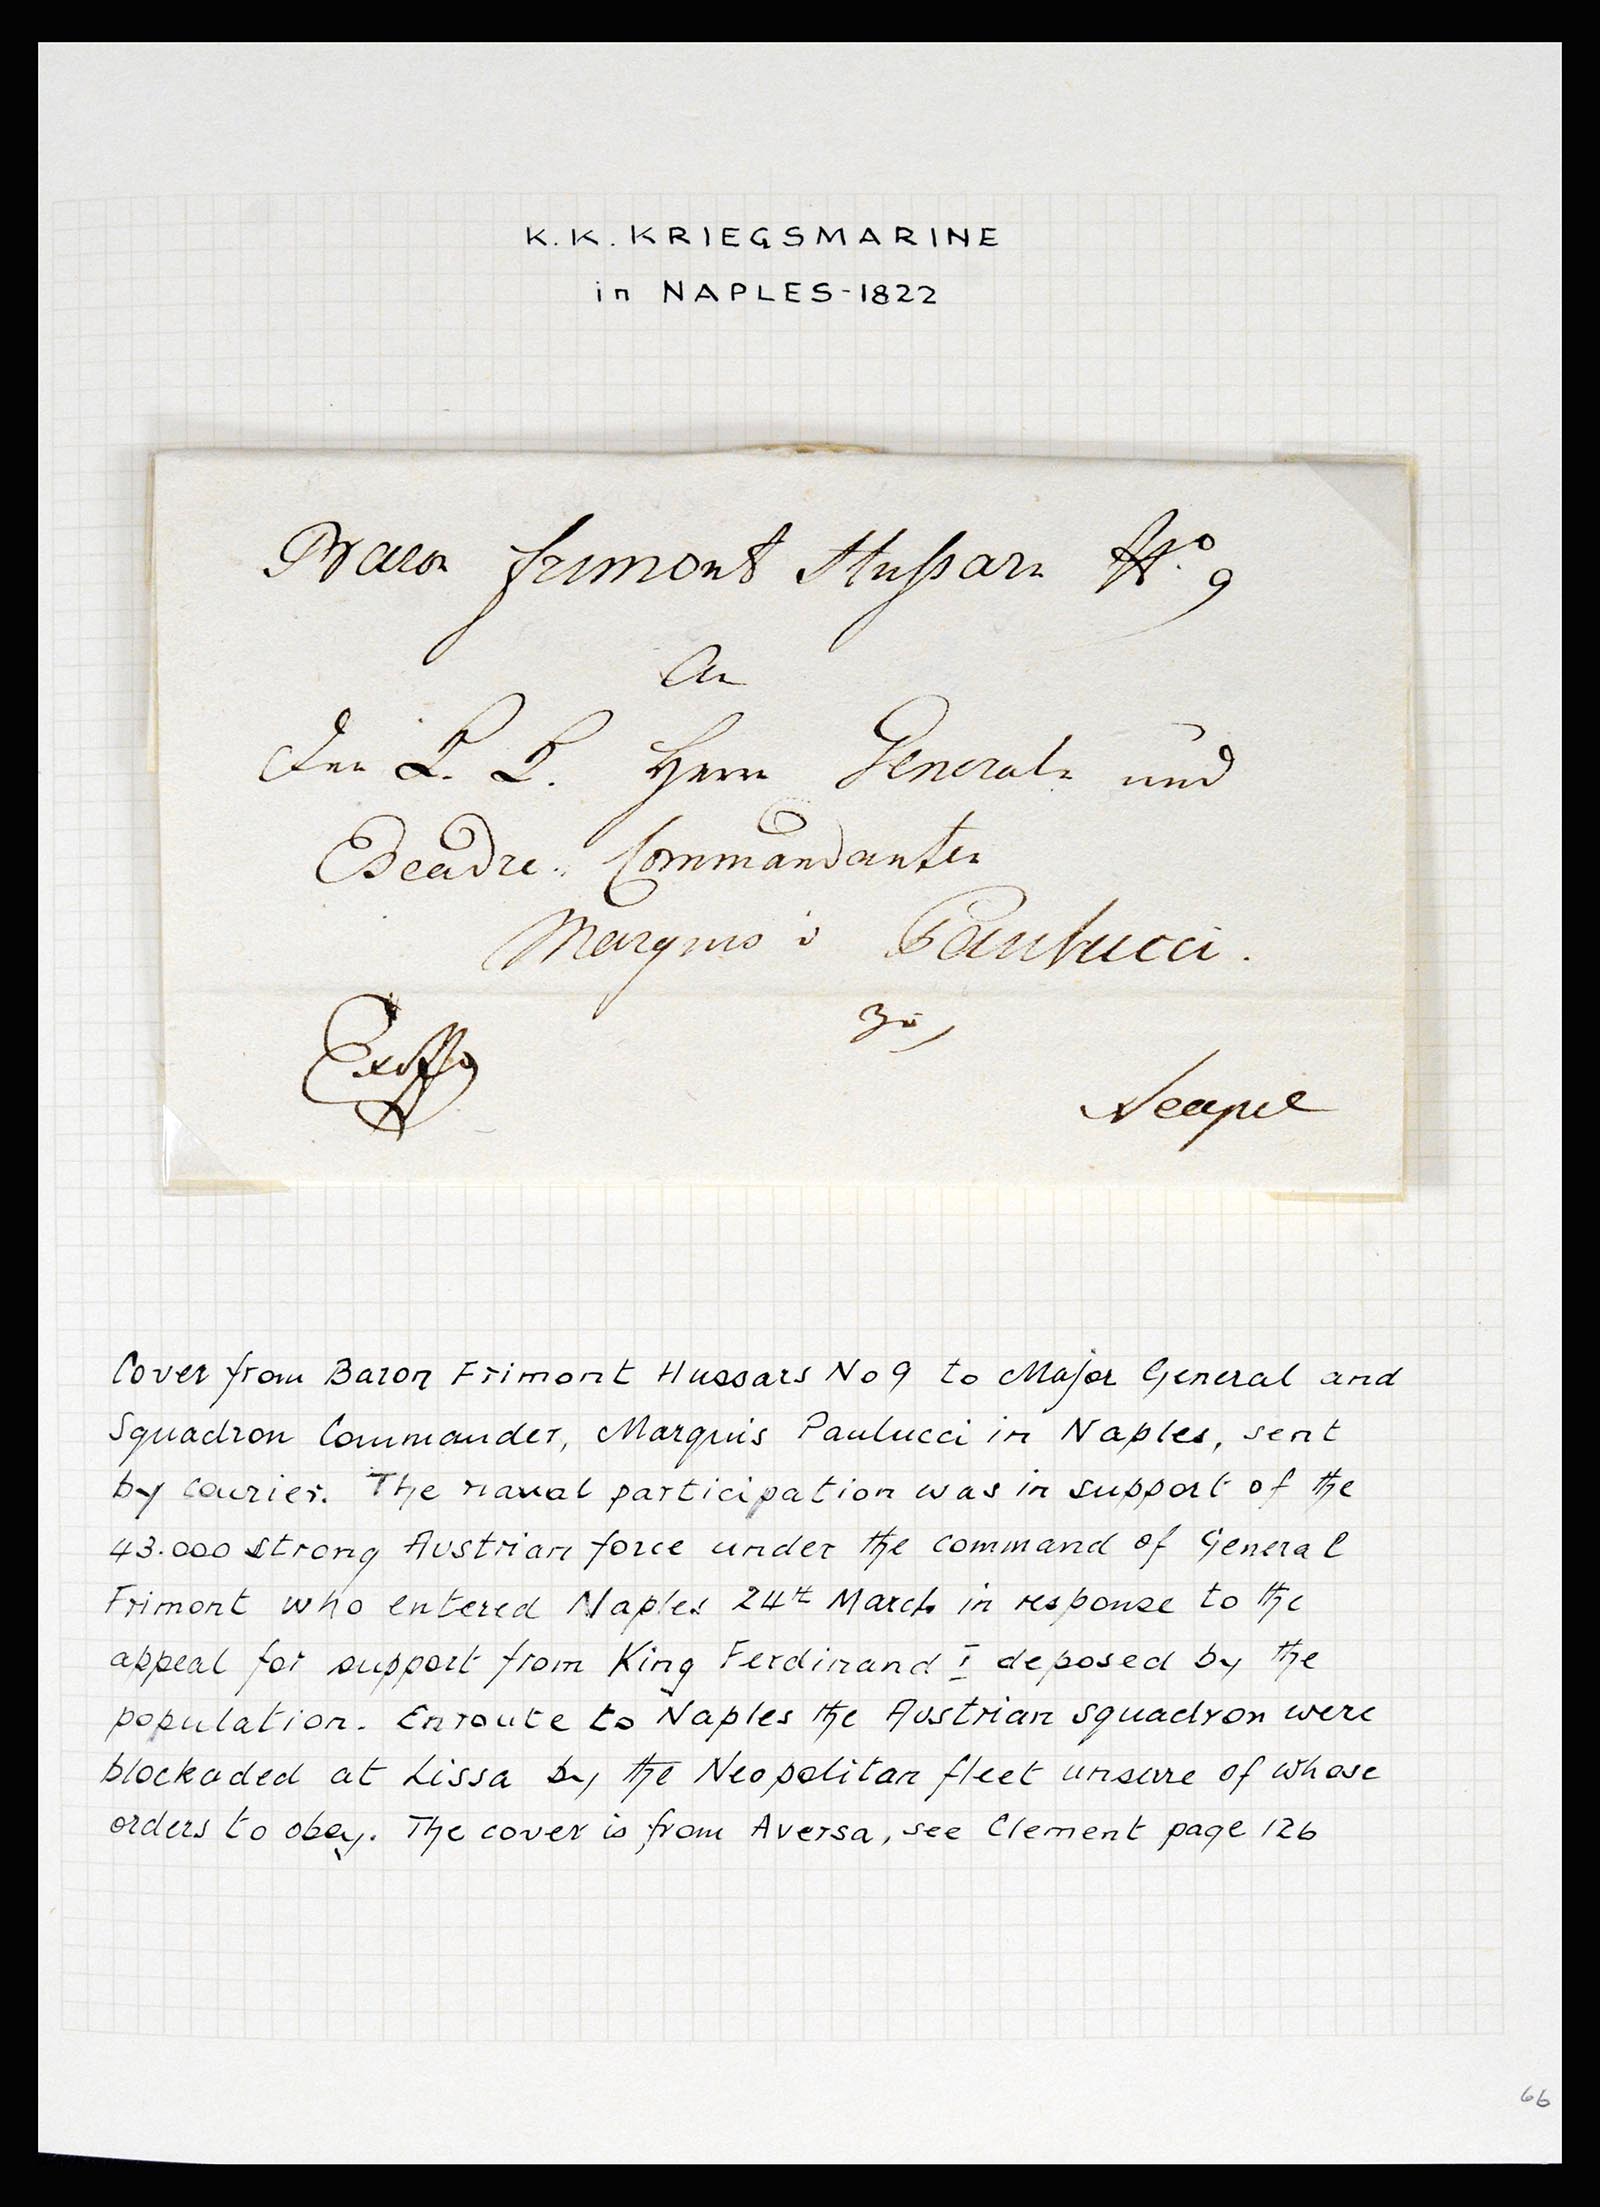 K. K. KRIEGSMARINE
in NAPLES-1822
Baron Frimont Hußarn No. 9
An
Den K. K. Herrn Generaln und
Escadre-Commandanten
Marquis v Paulucci.
Exoffo
zu
Neapel
Cover from Baron Frimont Hussars No 9 to Major General and
Squadron Commander, Marquis Paulucci in Naples, sent
by courier. The naval participation was in support of the
43.000 strong Austrian force under the command of General
Frimont who entered Naples 24th March in response to the
appeal for support from King Ferdinand I deposed by the
population. Enroute to Naples the Austrian squadron were
blockaded at Lissa by the Neopolitan fleet unsure of whose
orders to obey. The cover is from Aversa, see Clement page 126
66